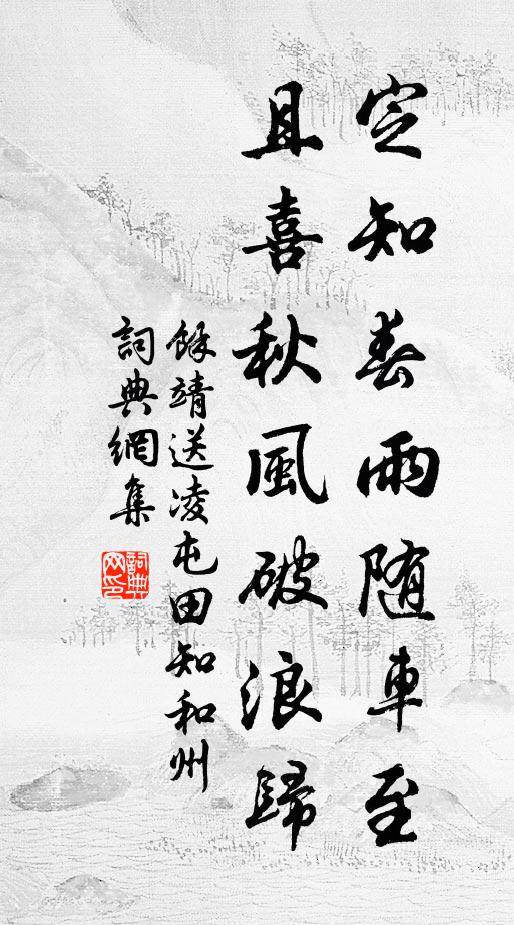 定知春雨随車至
且喜秋風破浪歸
餘靖送凌屯田知和州
詞典網集
詞典網印